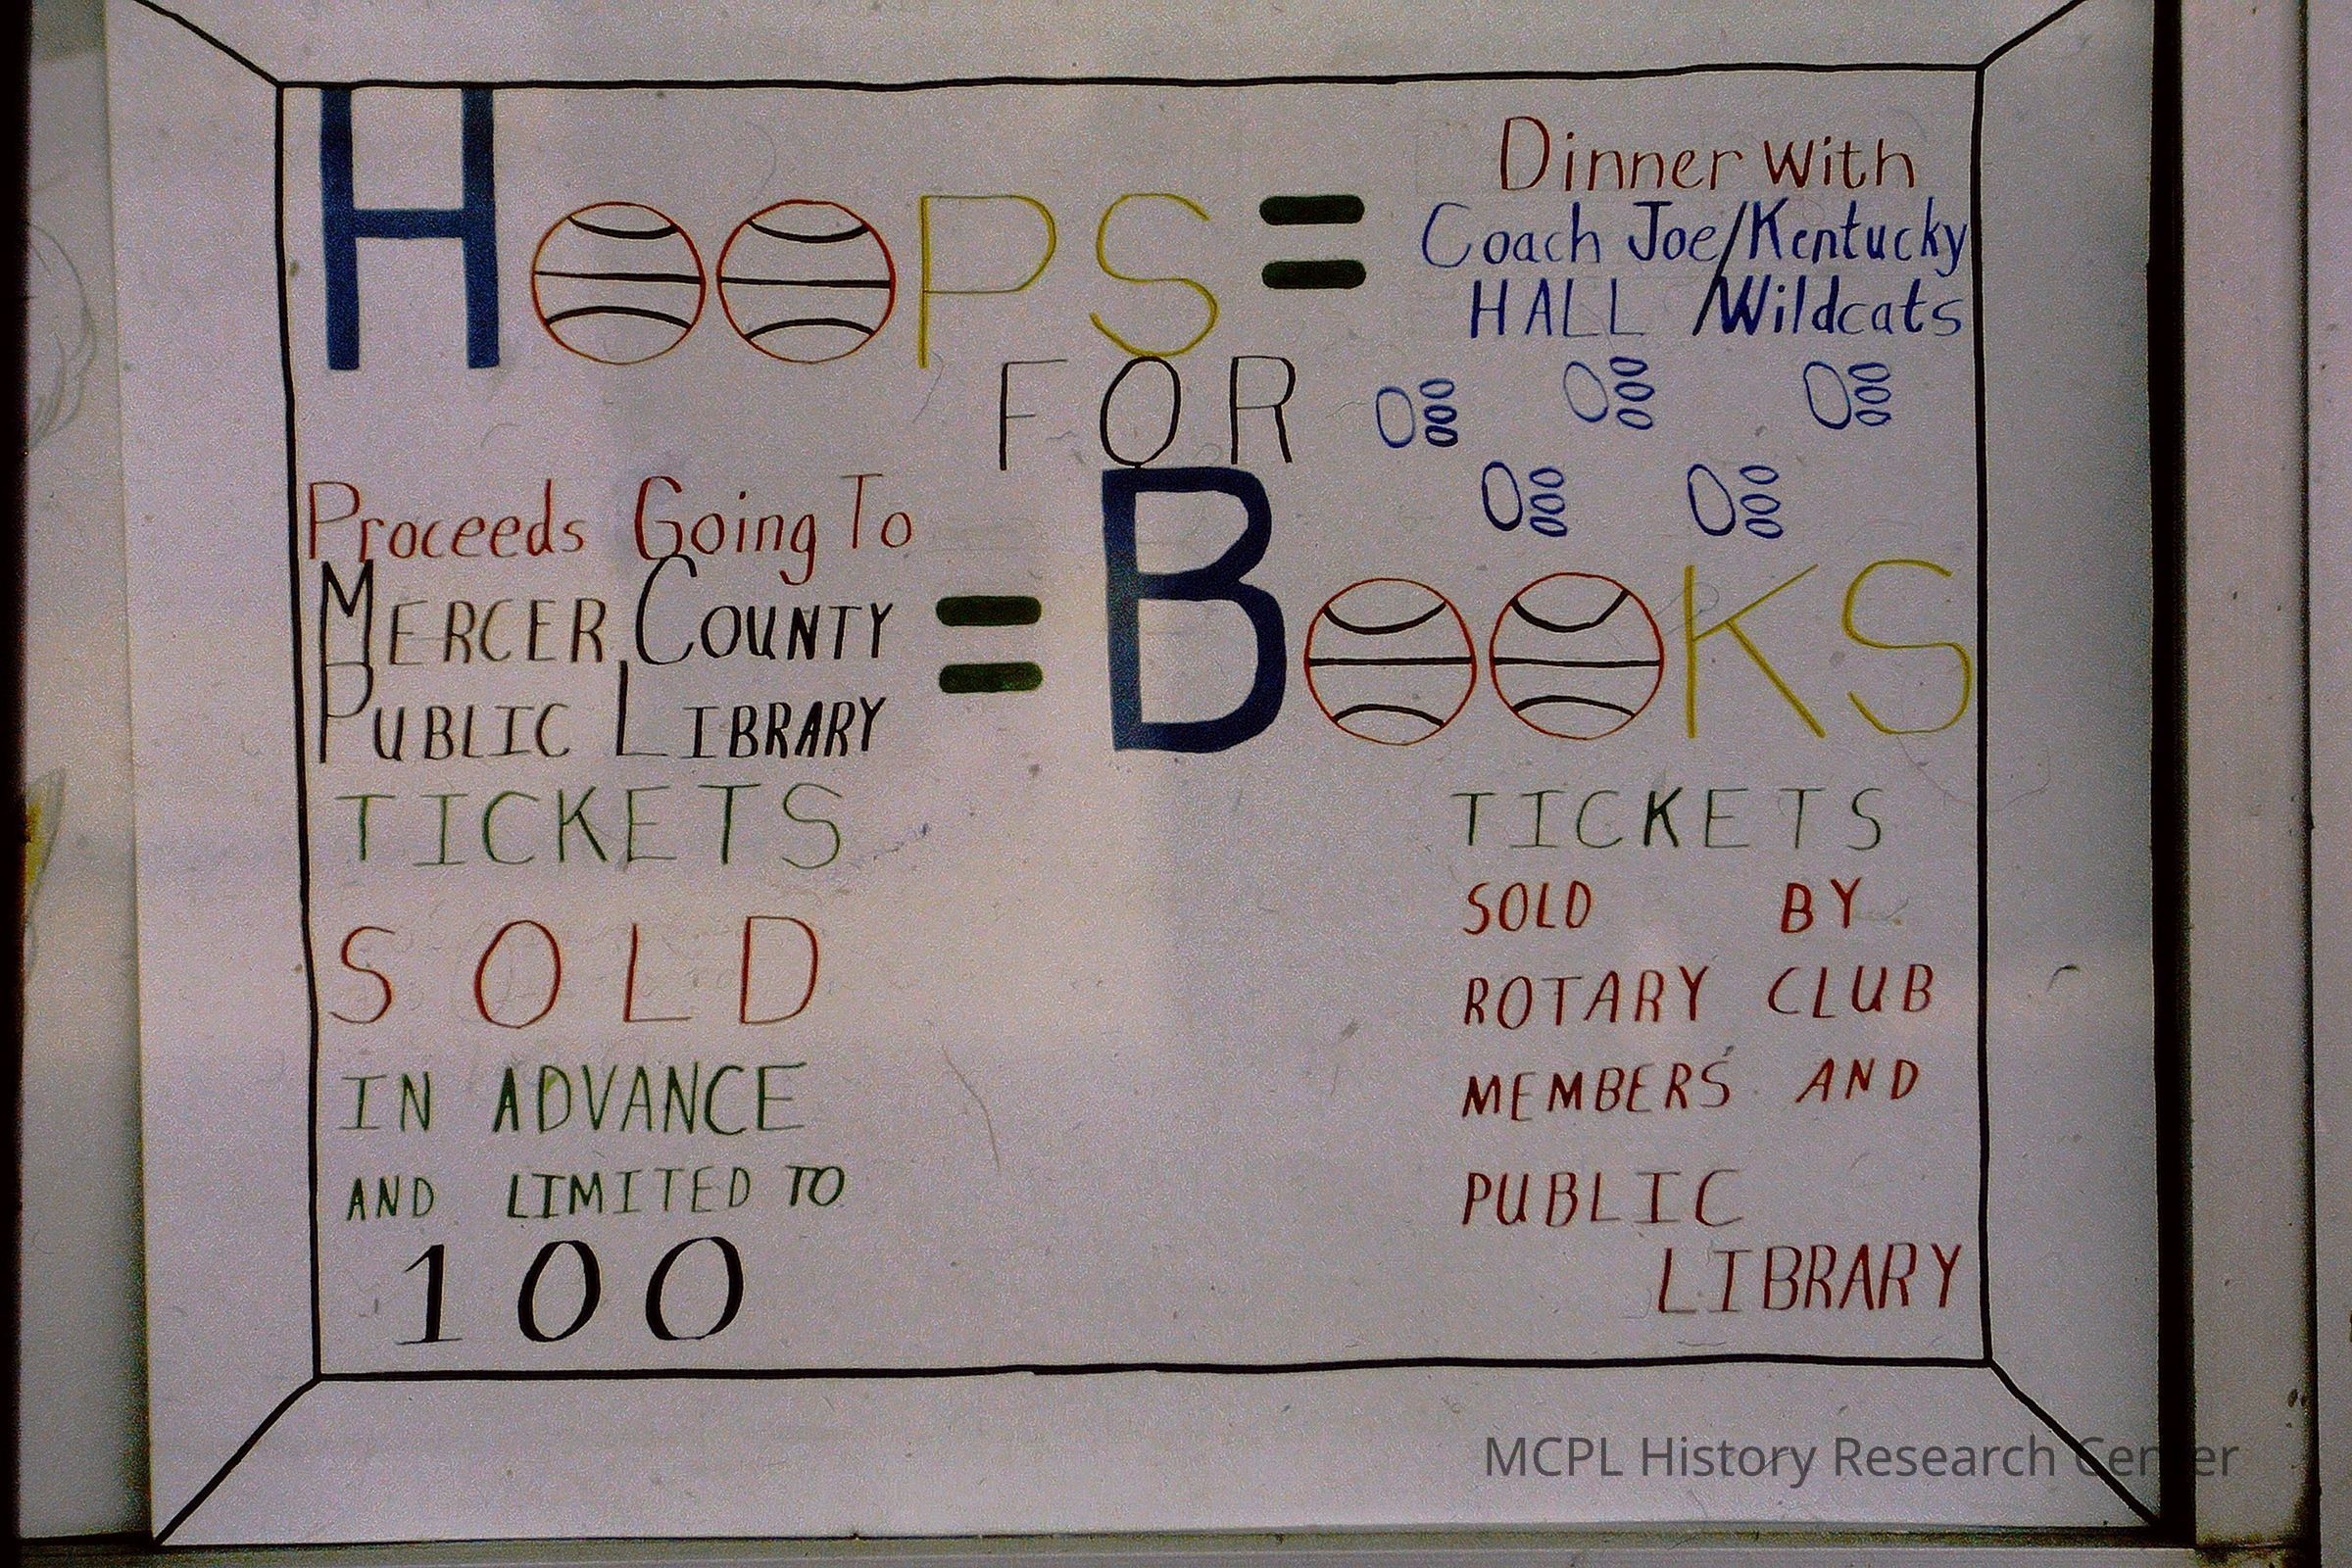 HOOPS =
Dinner With
Coach Joe/Kentucky
HALL /Wildcats
FOR
Proceeds Going To
MERCER COUNTY
PUBLIC LIBRARY
= BOOKS
TICKETS
SOLD
IN ADVANCE
AND LIMITED TO
100
TICKETS
SOLD BY
ROTARY CLUB
MEMBERS AND
PUBLIC
LIBRARY
MCPL History Research Center